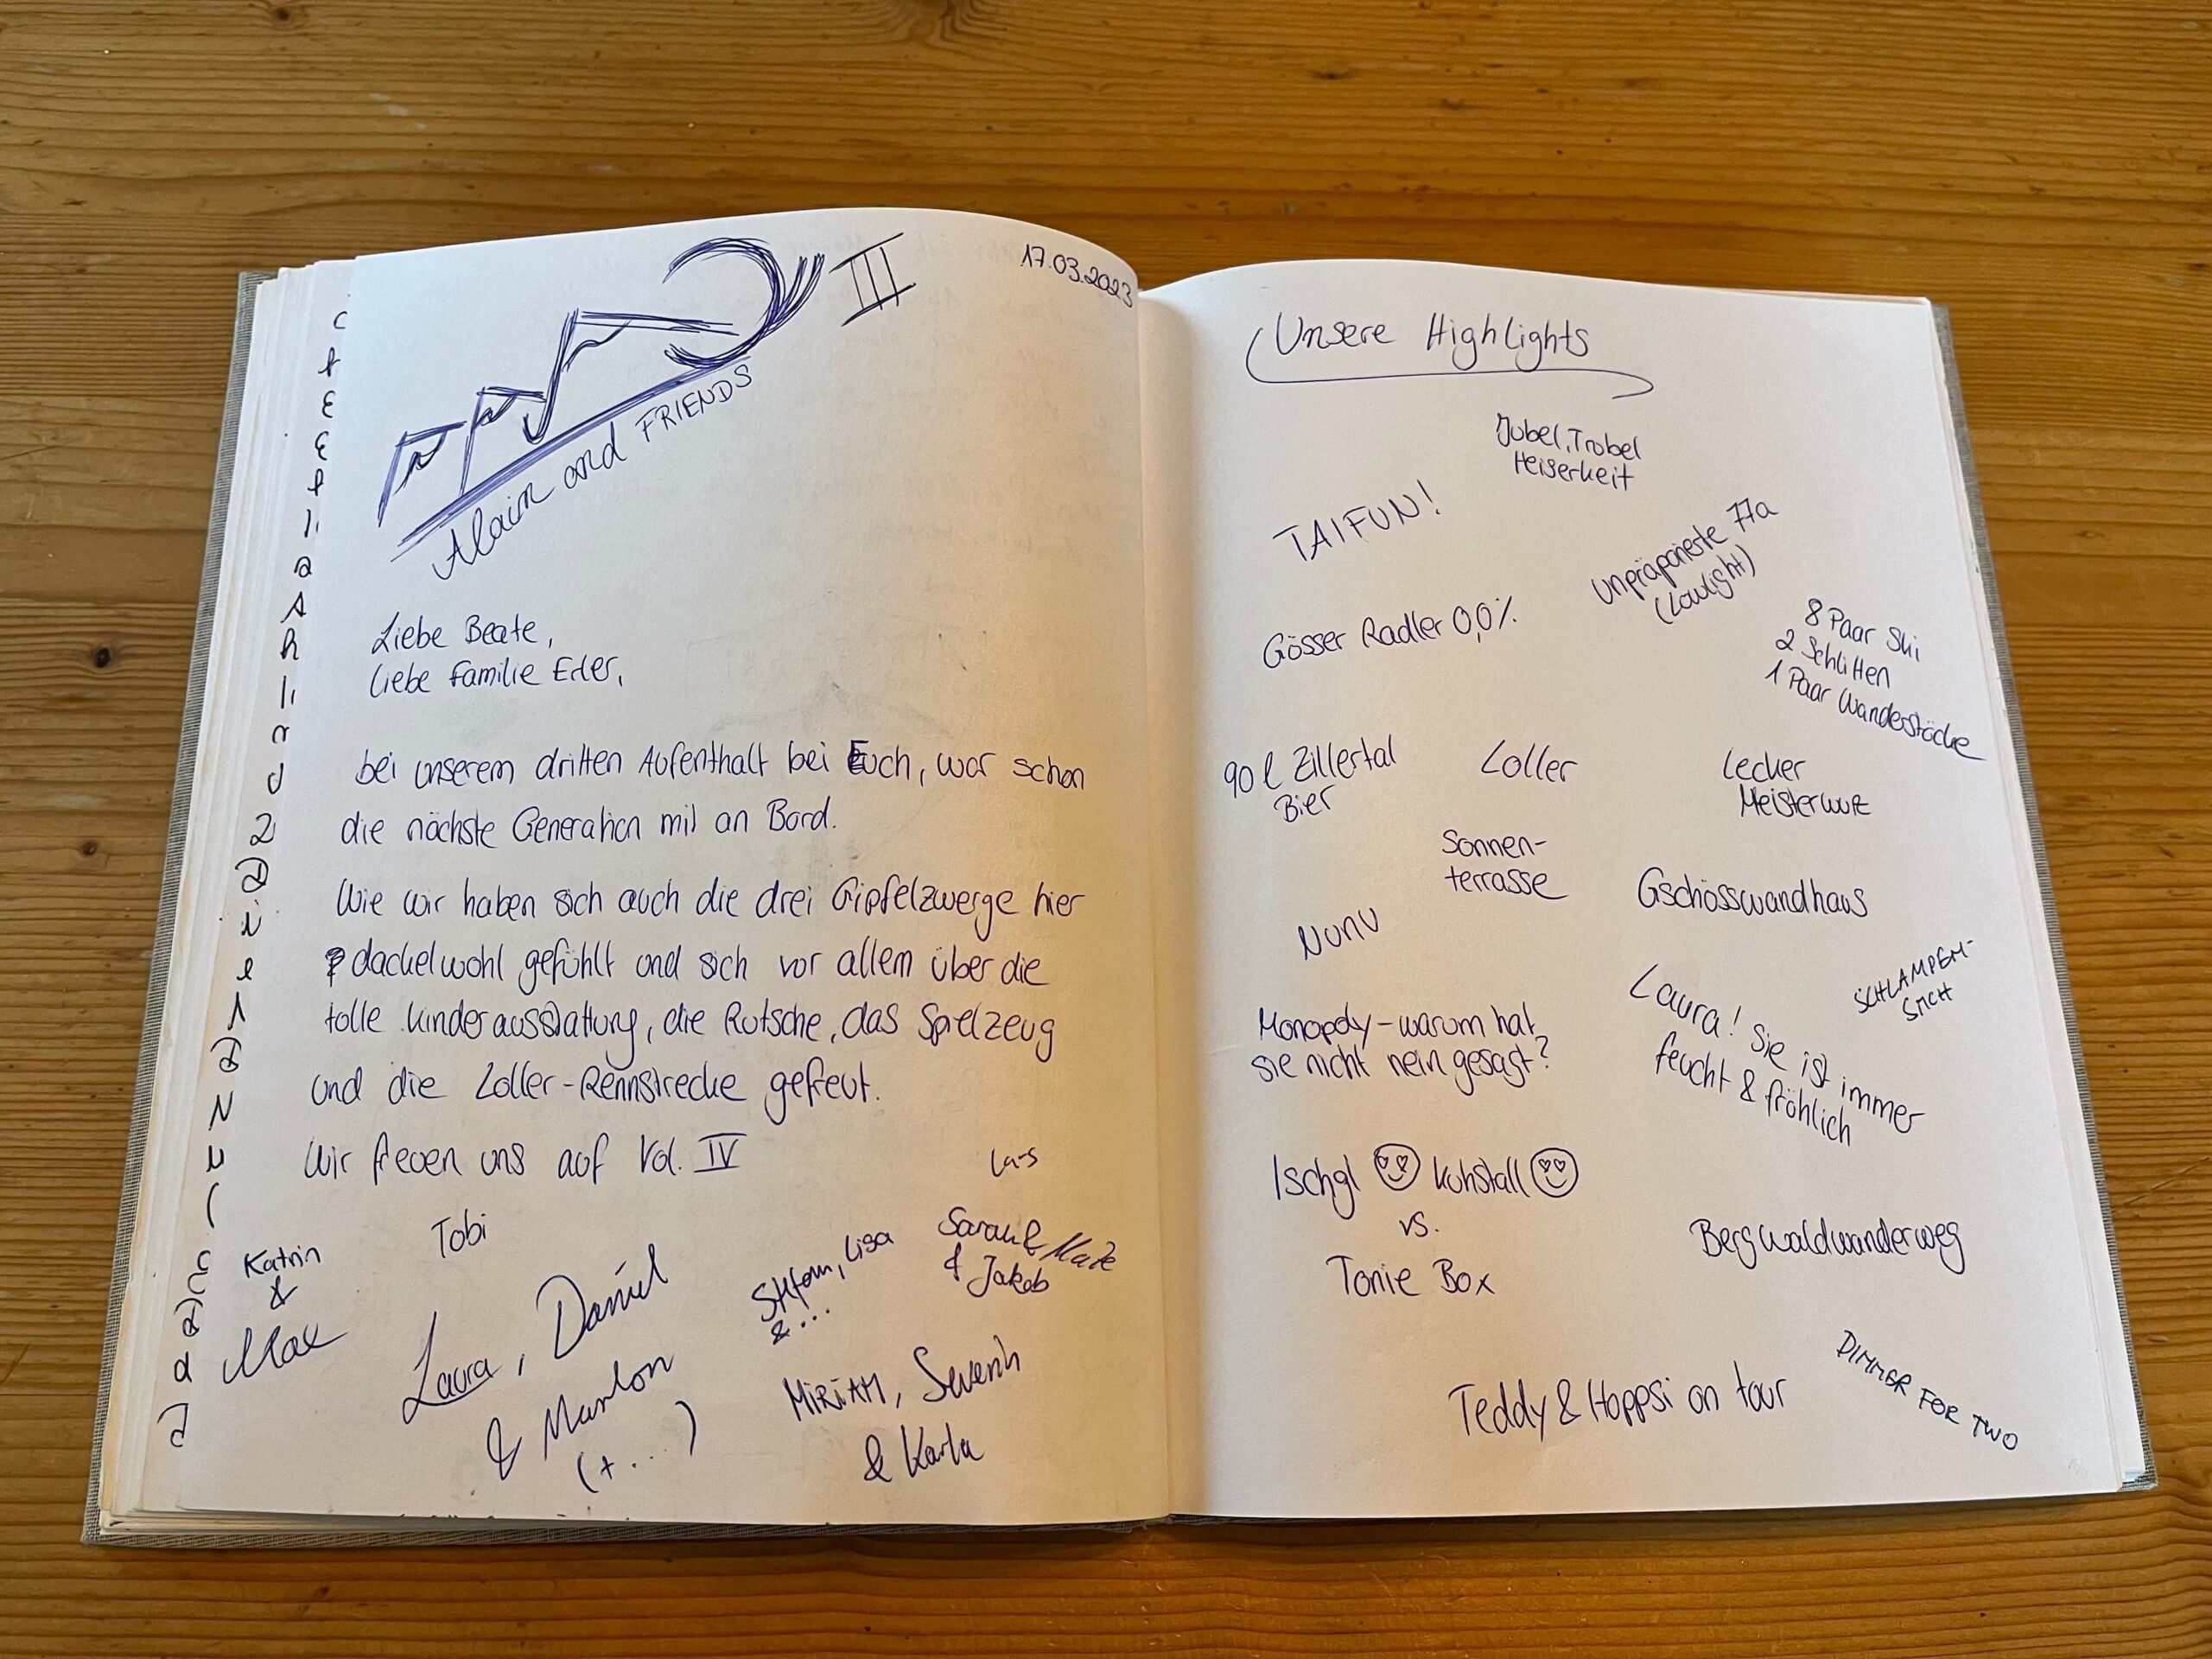 III
17.03.2023
Alain and FRIENDS
Liebe Beate,
liebe Familie Erler,
bei unserem dritten Aufenthalt bei Euch, war schon
die nächste Generation mit an Bord.
Wie wir haben sich auch die drei Gipfelzwerge hier
dackelwohl gefühlt und sich vor allem über die
tolle Kinderausstattung, die Rutsche, das Spielzeug
und die Loller-Rennstrecke gefreut.
Wir freuen uns auf Vol. IV
Lars
Katrin
&
Max
Tobi
Laura, Daniel
& Marlon
(+...)
Stefan, Lisa
& ...
Sarah & Malte
& Jakob
MiRiAM, Severin
& Karla
Unsere Highlights
Jubel, Trubel
Heiserkeit
TAIFUN!
Unpräparierte 77a
(Lowlight)
Gösser Radler 0,0%
8 Paar Ski
2 Schlitten
1 Paar Wanderstöcke
90 l Zillertal
Bier
Loller
Lecker
Meisterwurz
Sonnen-
terrasse
Gschösswandhaus
Nunu
SCHLAMPEM-
SMCH
Monopoly - warum hat
sie nicht nein gesagt?
Laura! Sie ist immer
feucht & fröhlich
Ischgl Kuhstall
vs.
Tonie Box
Bergwaldwanderweg
Teddy & Hoppsi on tour
DIMMER FOR TWO